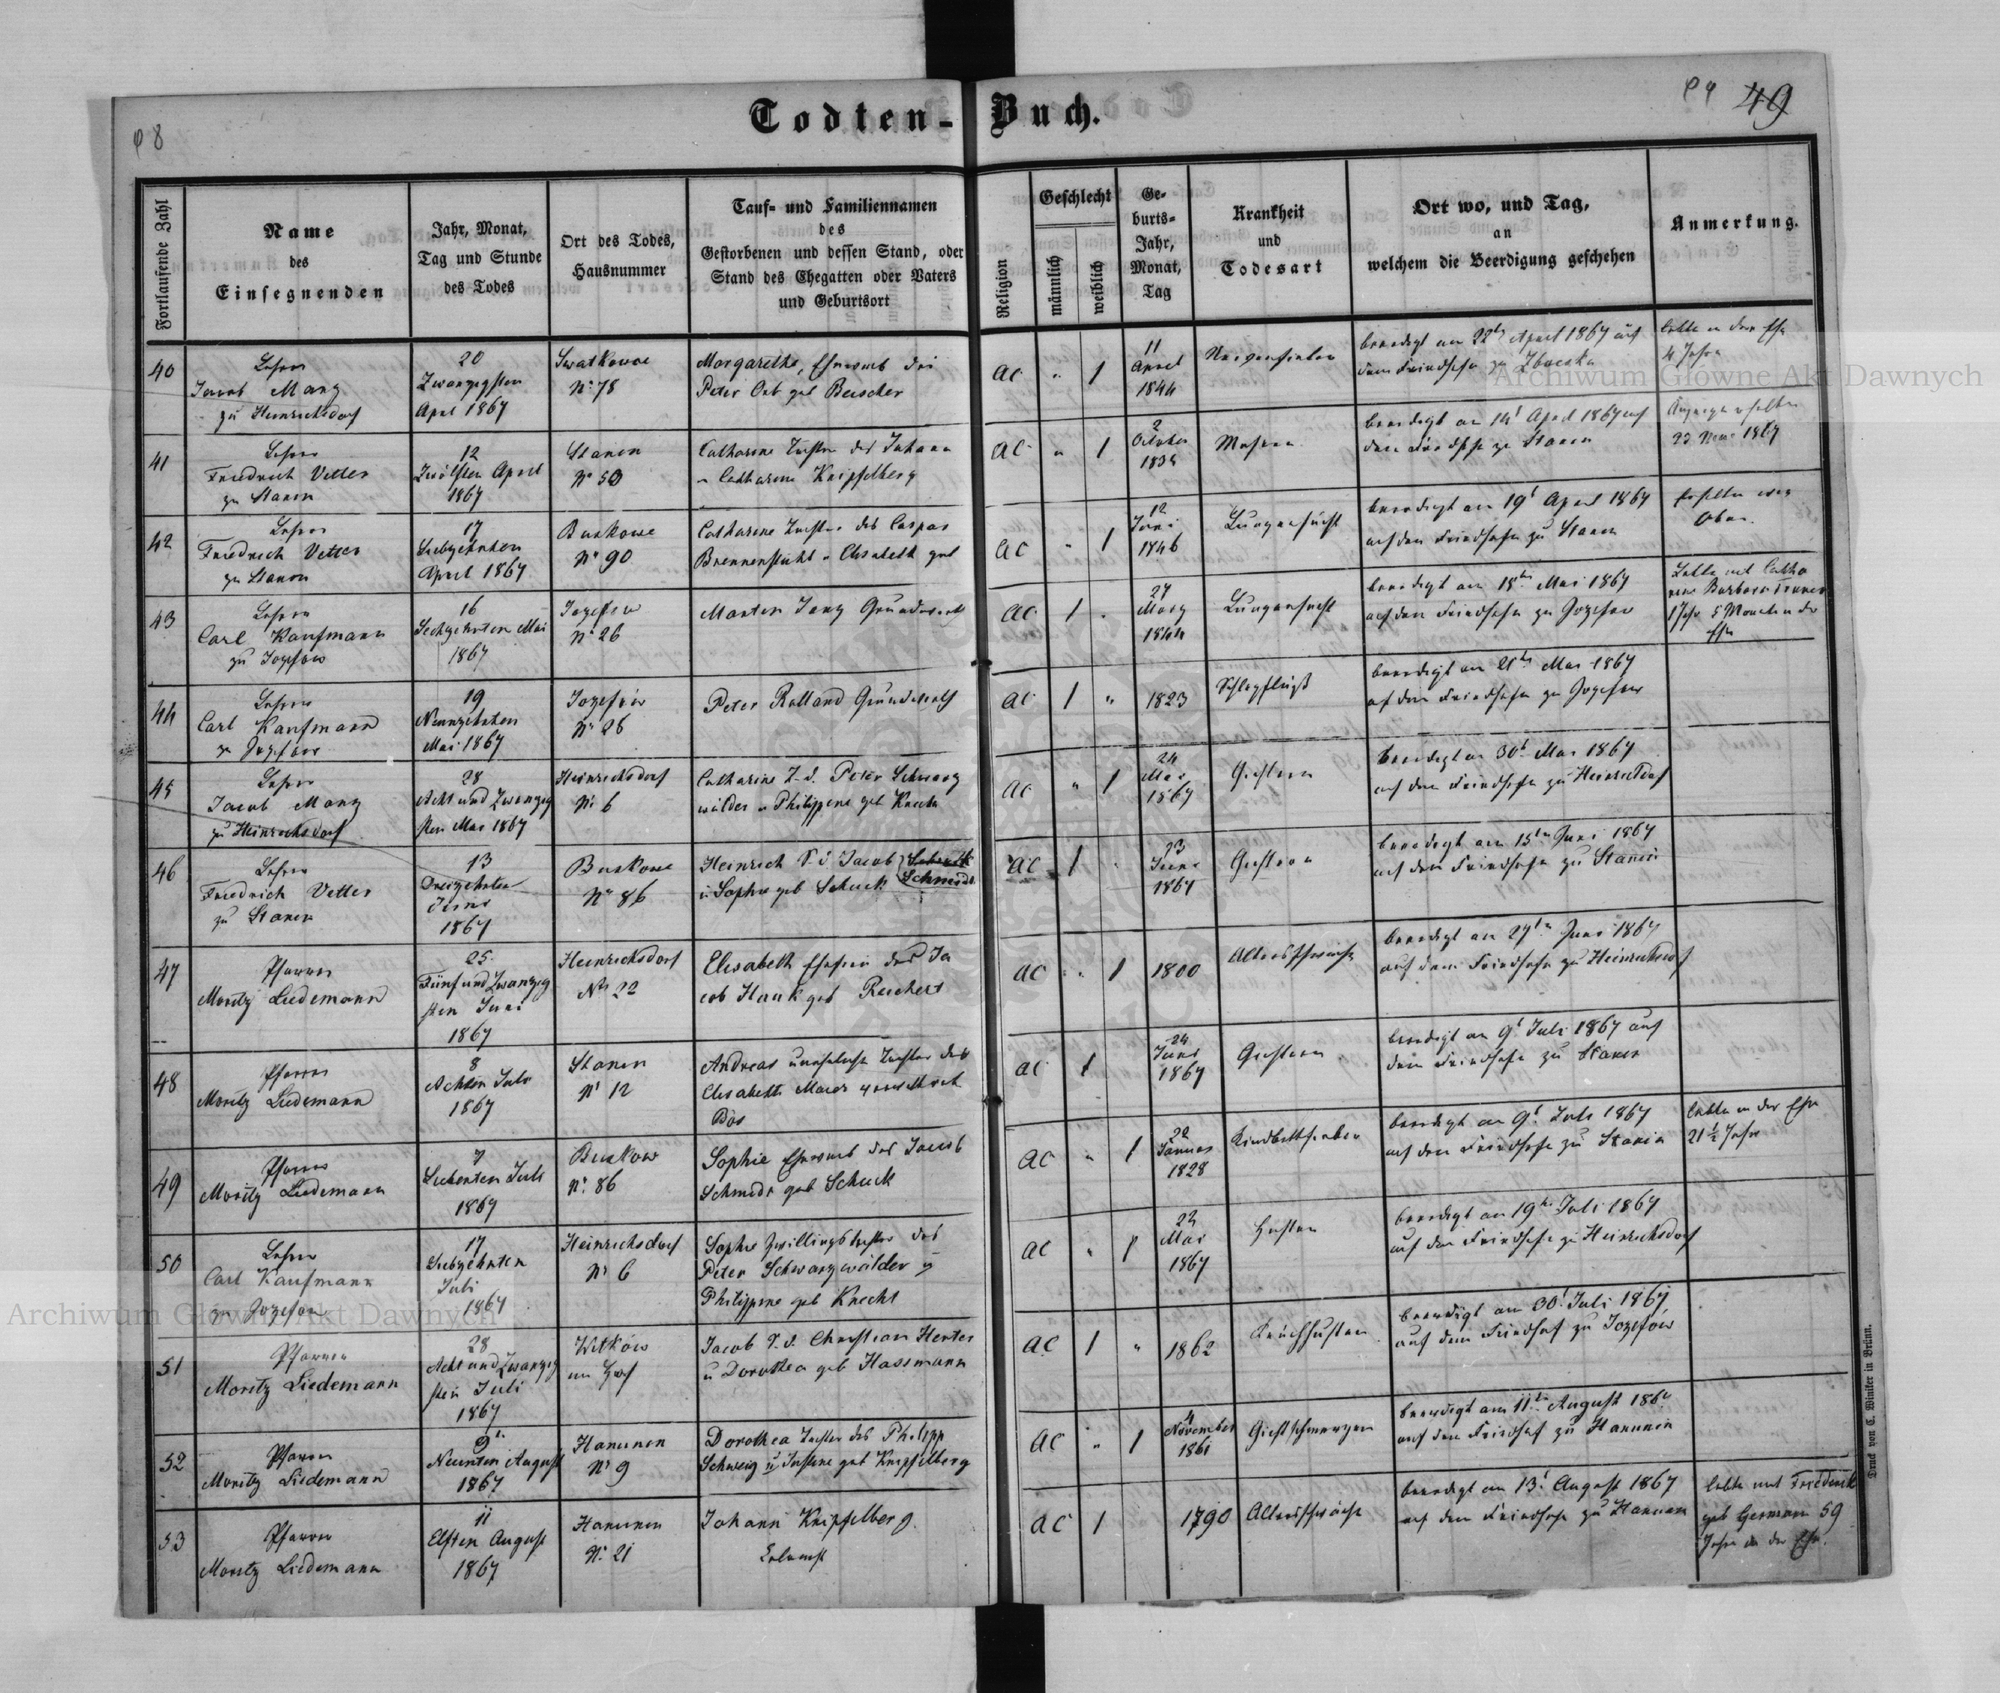 98
Todten-Buch.
94 49
Fortlaufende Zahl
Name
des
Einsegnenden
Jahr, Monat,
Tag und Stunde
des Todes
Ort des Todes,
Hausnummer
Tauf- und Familiennamen
des
Gestorbenen und dessen Stand, oder
Stand des Ehegatten oder Vaters
und Geburtsort
Religion
Geschlecht
männlich
weiblich
Ge-
burts-
Jahr,
Monat,
Tag
Krankheit
und
Todesart
Ort wo, und Tag,
an
welchem die Beerdigung geschehen
Anmerkung.
40
Lehrer
Jacob Manz
zu Heinrichsdorf
20
Zwanzigsten
April 1867
No 78
Margaretha, Eheweib des
Peter geb Beischer
ac
1
11
April
1844
beerdigt am 22ten April 1867 auf
dem Friedhofe zu
lebte in der Ehe
4 Jahre
41
Lehrer
Friedrich Vetter
zu Stanin
12
Zwölften April
1867
Stanin
No 50
Catharine Tochter des Johann
u Catharina Knipfelberg
ac
1
2
October
beerdigt am 14t April 1867 auf
dem Friedhofe zu Stanin
Masern
1867
42
Lehrer
Friedrich Vetter
zu Stanin
17
Siebzehnten
April 1867
Buskowe
No 90
Catharine Tochter des Caspar
Brennenstuhl u Elisabeth geb
ac
1
12
Juni
1846
Lungensucht
beerdigt am 19t April 1867
auf dem Friedhofe zu Stanin
oben
43
Lehrer
Carl Kaufmann
zu Jozefow
16
Sechzehnten Mai
1867
Jozefow
No 26
Martin Janz Grundwirth
ac
1
27
März
1844
Lungensucht
beerdigt am 18ten Mai 1867
auf dem Friedhofe zu Jozefow
Barbara
1 Jahr 5 Monate in der
Ehe
44
Lehrer
Carl Kaufmann
zu Jozefow
19
Neunzehnten
Mai 1867
Jozefów
No 26
Peter Rolland Grundwirth
ac
1
1823
Schlagfluß
beerdigt am 21ten Mai 1867
auf dem Friedhofe zu Jozefow
45
Lehrer
Jacob Manz
zu Heinrichsdorf
28
Acht und Zwanzig
sten Mai 1867
Heinrichsdorf
No 6
Catharine T. d. Peter Schwarz
wälder u Philippine geb Knecht
ac
1
24
Mai
1867
Gichtern
beerdigt am 30t Mai 1867
auf dem Friedhofe zu Heinrichsdorf
46
Lehrer
Friedrich Vetter
zu Stanin
13
Dreizehnten
Juni
1867
Buskowe
No 86
Heinrich S. d. Jacob
u Sophie geb Schuck Schmidt
ac
1
Juni
1867
Gichtern
beerdigt am 15ten Juni 1867
auf dem Friedhofe zu Stanin
47
Pfarrer
Moritz Liedemann
25
Fünf und Zwanzig
sten Juni
1867
Heinrichsdorf
No 22
Elisabeth Ehefrau des Ja
cob Hauk geb Reichert
ac
1
1800
Altersschwäche
beerdigt am 27ten Juni 1867
auf dem Friedhofe zu Heinrichsdorf
48
Pfarrer
Moritz Liedemann
8
Achten Juli
1867
Stanin
No 12
Andreas
Elisabeth Maier
Bös
ac
1
24
Juni
1867
Gichtern
beerdigt am 9t Juli 1867 auf
dem Friedhofe zu Stanin
49
Pfarrer
Moritz Liedemann
7
Siebenten Juli
1867
Buskow
No 86
Sophie Eheweib des Jacob
Schmidt geb Schuck
ac
1
Januar
1828
Kindbettfieber
beerdigt am 9t Juli 1867
auf dem Friedhofe zu Stanin
lebte in der Ehe
21½ Jahre
50
Lehrer
Carl Kaufmann
zu Jozefow
17
Siebzehnten
Juli
1867
Heinrichsdorf
No 6
Sophie Zwillingstochter des
Peter Schwarzwälder u
Philippine geb Knecht
ac
1
Mai
1867
Husten
beerdigt am 19ten Juli 1867
auf dem Friedhofe zu Heinrichsdorf
51
Pfarrer
Moritz Liedemann
28
Acht und Zwanzig
sten Juli
1867
Witków
im Hof
Jacob S. d. Christian Herter
u Dorothea geb Hassmann
ac
1
1862
Keuchhusten
beerdigt am 30t Juli 1867
auf dem Friedhof zu Jozefow
52
Pfarrer
Moritz Liedemann
9t
Neunten August
1867
Hanunin
No 9
Dorothea Tochter des Philipp
Schweig u Justine geb Knipfelberg
ac
1
4
November
1861
Gichtschmerzen
beerdigt am 11ten August 1867
auf dem Friedhof zu Hanunin
53
Pfarrer
Moritz Liedemann
11
Elften August
1867
Hanunin
No 21
Johann Knipfelberg.
ac
1
1790
Altersschwäche
beerdigt am 13t August 1867
auf dem Friedhofe zu Hanunin
lebte mit Friederik
geb Germann 59
Jahre in der Ehe.
Druck von C. Winiker in Brünn.
Archiwum Główne Akt Dawnych
Archiwum Główne Akt Dawnych